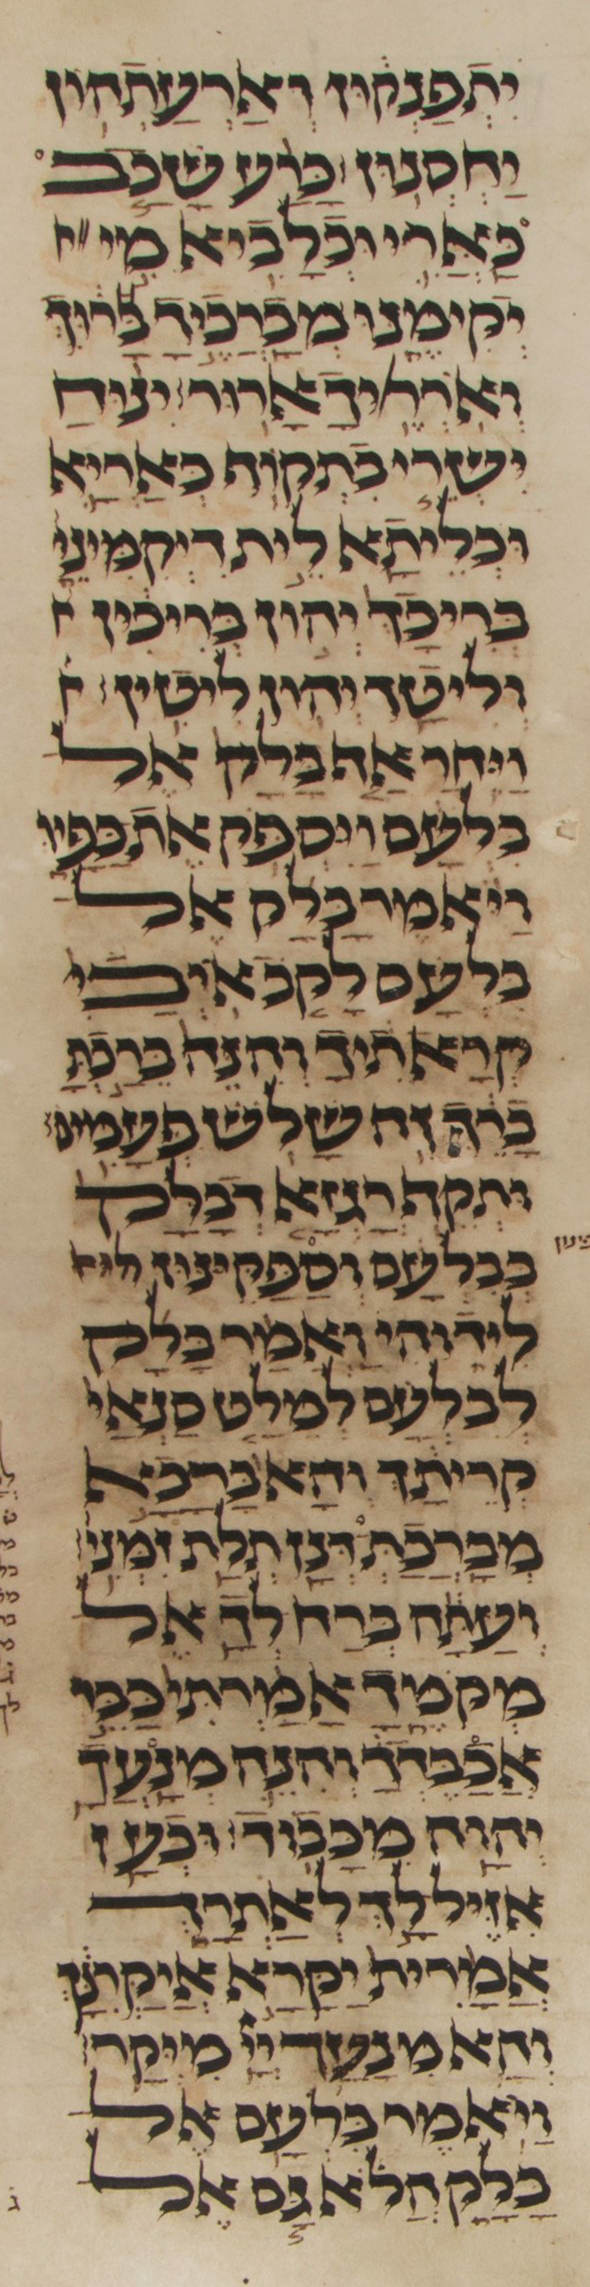 יִתְפַּנְקוּן וְאַרְעַתְהוֹן
יַחְסְנוּן׃ כָּרַע שָׁכַב
כַּאֲרִי וּכְלָבִיא מִי
יְקִימֶנּוּ מְבָרְכֶיךָ בָרוּךְ
וְאֹרְרֶיךָ אָרוּר׃ יְנוּחַ
יִשְׁרֵי בִתְקוֹף כְּאַרְיָא
וּכְלֵיתָא לֵית דִּיקִמִינֵיהּ
בְּרִיכָךְ יְהוֹן בְּרִיכִין
וְלִיטָךְ יְהוֹן לִיטִין׃
וַיִּחַר אַף בָּלָק אֶל
בִּלְעָם וַיִּסְפֹּק אֶת כַּפָּיו
וַיֹּאמֶר בָּלָק אֶל
בִּלְעָם לָקֹב אֹיְבַי
קְרָאתִיךָ וְהִנֵּה בֵּרַכְתָּ
בָרֵךְ זֶה שָׁלֹשׁ פְּעָמִים׃
וּתְקֵף רֻגְזָא דְּבָלָק
בְּבִלְעָם וּסְפַקִינוּן
לִידוֹהִי וַאֲמַר בָּלָק
לְבִלְעָם לְמֵילַט סָנְאַי
קְרֵיתָךְ וְהָא בָּרָכָא
מְבָרְכַת דְּנָן תְּלָת זִמְנִין׃
וְעַתָּה בְּרַח לְךָ אֶל
מְקוֹמֶךָ אָמַרְתִּי כַּבֵּד
אֲכַבֶּדְךָ וְהִנֵּה מְנָעֲךָ
יְהוָה מִכָּבוֹד׃ וּכְעַן
אִזֵיל לָךְ לְאַתְרָךְ
אֲמַרִית יַקָּרָא אֲיַקְרִנָּךְ
וְהָא מְנָעָךְ יְיָ מִיקָר׃
וַיֹּאמֶר בִּלְעָם אֶל
בָּלָק הֲלֹא גַּם אֶל